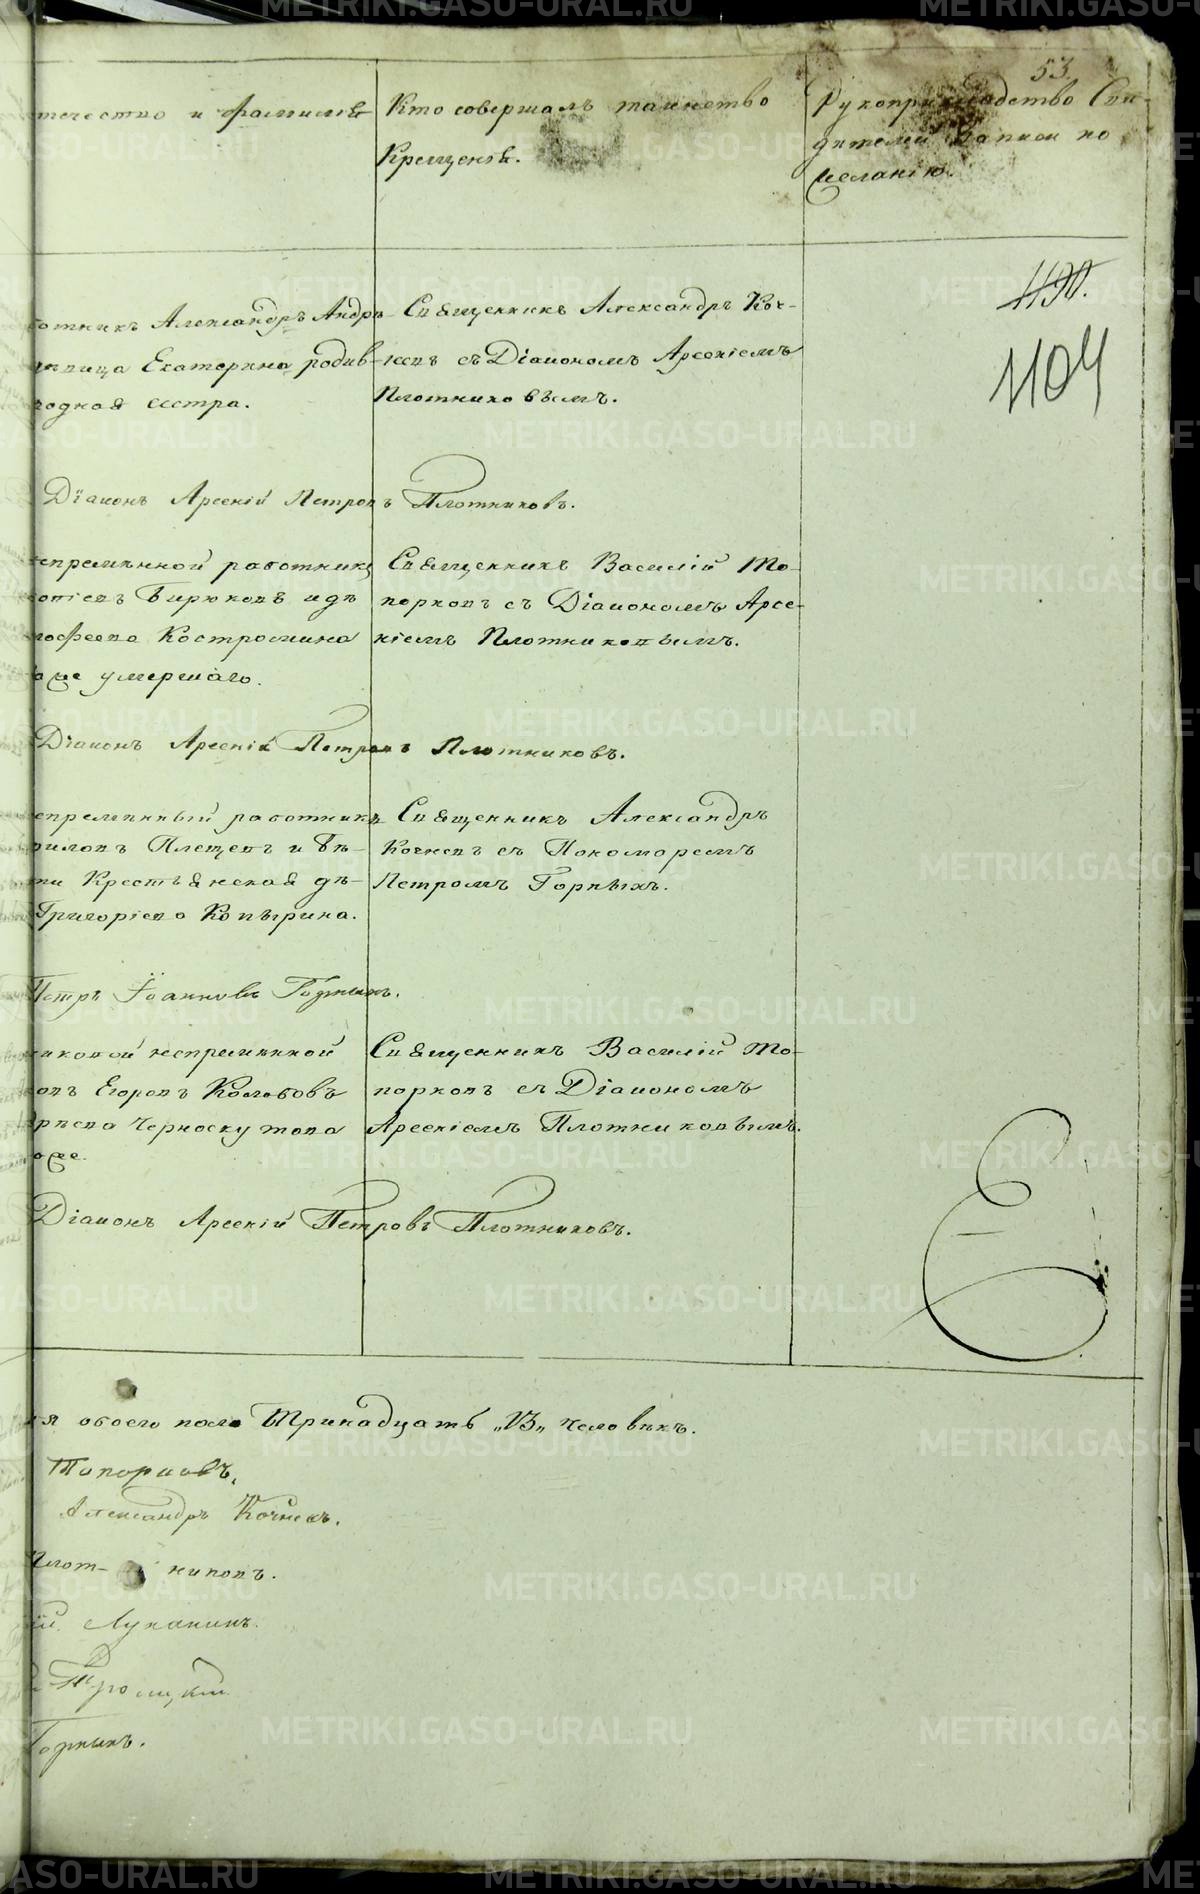 53.
отчество и фамилія
Кто совершалъ таинство
Крещенія.
Рукоприкладство Сви-
дѣтелей Записи по
желанію.
1190.
1104
ботникъ Александръ Андр
Екатерина родив-
родная сестра.
Священникъ Александръ Коч-
невъ съ Діакономъ Арсеніемъ
Плотниковымъ.
Діаконъ Арсеній Петровъ Плотниковъ.
епремѣнной работникъ
Бирюковъ и дѣ
Костромина
умершаго.
Священникъ Василій То-
порковъ съ Діакономъ Арсе-
ніемъ Плотниковымъ.
Діаконъ Арсеній Петровъ Плотниковъ.
епремѣнный работникъ
риловъ Плещевъ и
Крестьянская дѣ-
Григоріева Копырина.
Священникъ Александръ
Кочневъ съ Пономоремъ
Петромъ Горныхъ.
Петръ Іоанновъ Горныхъ.
никовой непремѣнной
Егоровъ Колобовъ
Черноскутова
оже.
Священникъ Василій То-
порковъ съ Діакономъ
Арсеніемъ Плотниковымъ.
Діаконъ Арсеній Петровъ Плотниковъ.
ся обоего пола Тринадцать „13„ человѣкъ.
Топорковъ.
Александръ Кочневъ.
Плот- никовъ.
ій Луканинъ.
Троицкій
Горныхъ.
METRIKI.GASO-URAL.RU